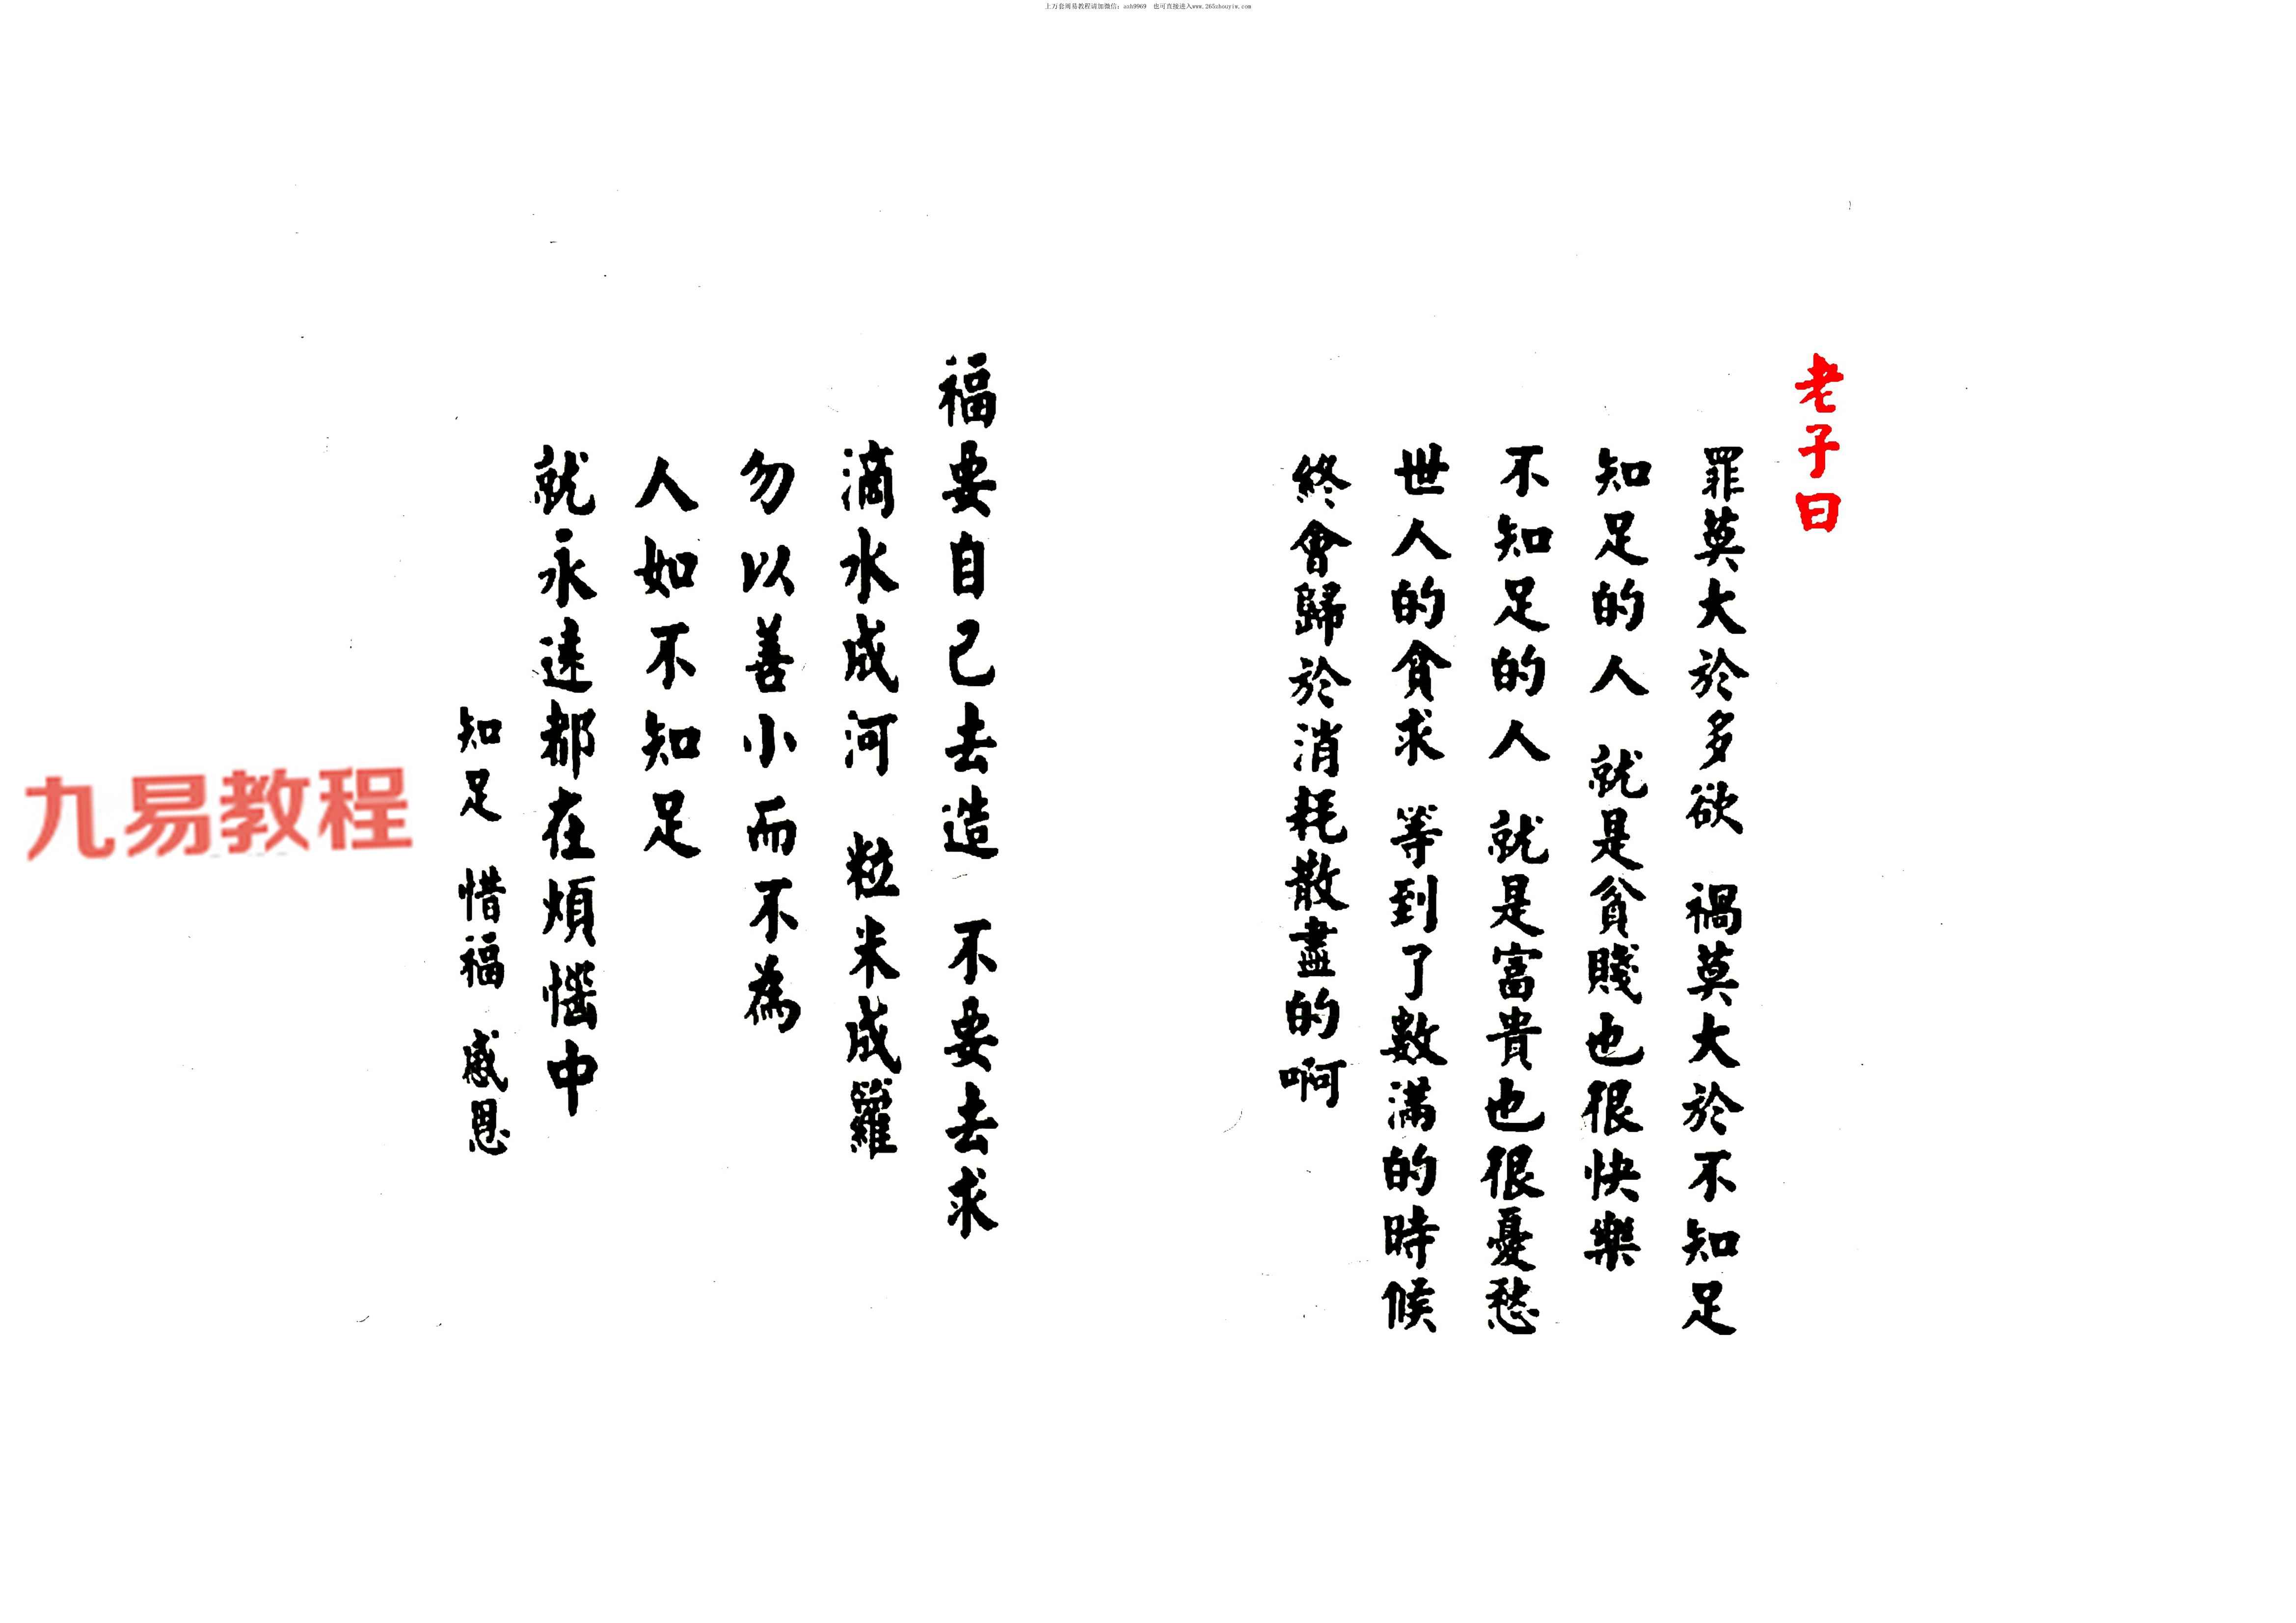 上万套周易教程请加微信：axh9969　也可直接进入www.265zhouyiw.com
老子曰
罪莫大於多欲　禍莫大於不知足
知足的人　就是貧賤也很快樂
不知足的人　就是富貴也很憂愁
世人的貪求　等到了數滿的時候
終會歸於消耗散盡的啊
福要自己去造　不要去求
滴水成河　粒米成籮
勿以善小而不為
人如不知足
就永遠都在煩惱中
知足　惜福　感恩
九易教程